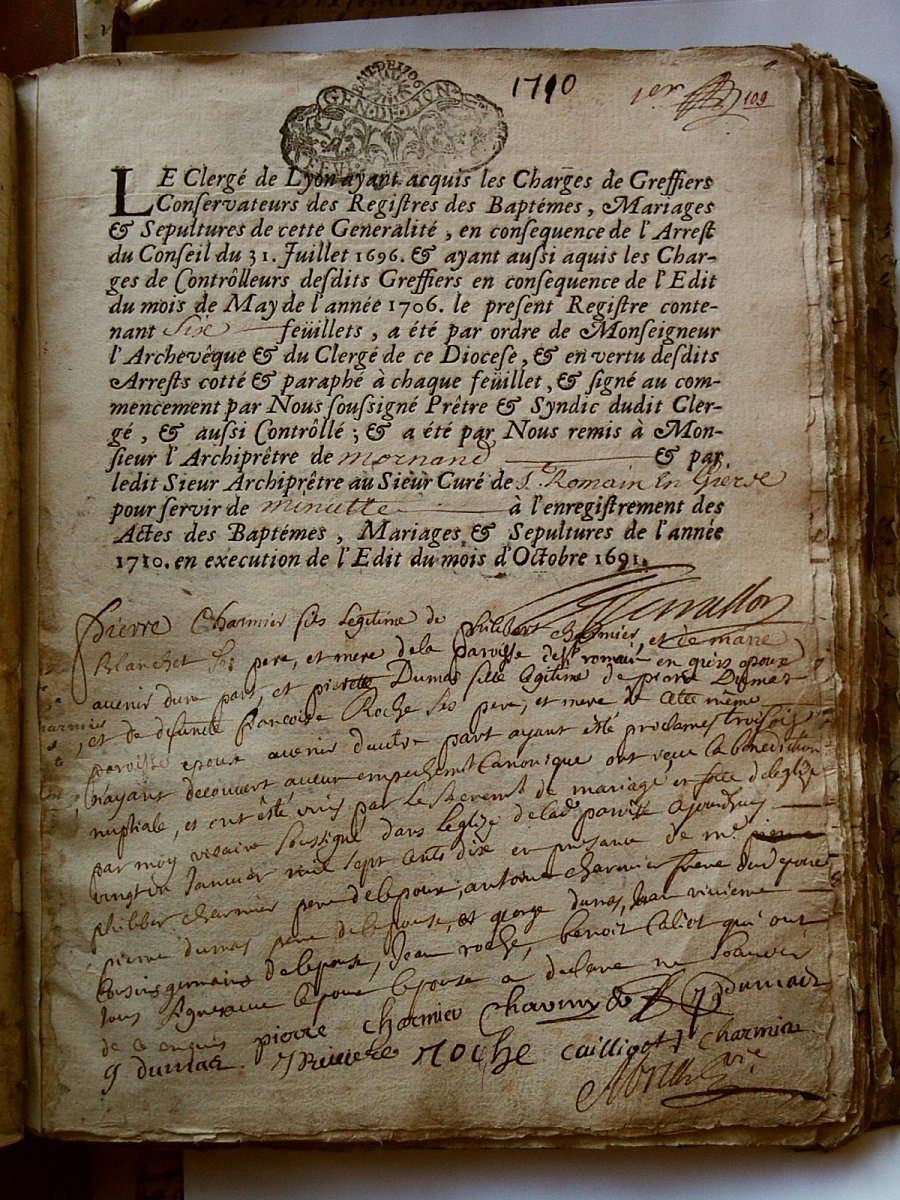 GEN·DE·LYON·
1710
1er
109
LE Clergé de Lyon ayant acquis les Charges de Greffiers
Conservateurs des Registres des Baptémes, Mariages
& Sepultures de cette Generalité, en consequence de l'Arrest
du Conseil du 31. Juillet 1696. & ayant aussi aquis les Char-
ges de Contrôlleurs desdits Greffiers en consequence de l'Edit
du mois de May de l'année 1706. le present Registre conte-
nant six feüillets, a été par ordre de Monseigneur
l'Archevêque & du Clergé de ce Diocese, & en vertu desdits
Arrests cotté & paraphé à chaque feüillet, & signé au com-
mencement par Nous soussigné Prêtre & Syndic dudit Cler-
gé, & aussi Contrôllé; & a été par Nous remis à Mon-
sieur l'Archiprêtre de mornand & par
ledit Sieur Archiprêtre au Sieur Curé de St Romain en Gierse
pour servir de minutte à l'enregistrement des
Actes des Baptémes, Mariages & Sepultures de l'année
1710. en execution de l'Edit du mois d'Octobre 1691.
pierre Charmier fils legitime de philibert charmier, et de marie
Blanchet ses pere, et mere de la paroisse de st romain en giers epoux
avenir dune part, et pierette Dumas fille legitime de pierre Dumas
et de defuncte francoise Roche ses pere, et mere de cette même
paroisse epouse avenir dautre part ayant été proclames trois fois
nayant decouvert aucun empechemt Canonique ont receu la benediction
nuptiale, et ont été unis par le sacremt de mariage en face de leglise
par moy vicaire soussigné dans leglise de lad paroisse ajourdhuy
vingt un Janvier mil sept cents dix en presance de mr pierre
philiber charmier pere de lepoux, antoine charmier frere dud epoux
pierre dumas pere de lepouse, et george dumas, Jean riviere
Cousins germains de lepouse, Jean roche, benoit Caliot qui ont
tous signe avec lepoux lepouse a declare ne scavoir
de ce enquis pierre charmier Charmier dumas
g dumas J Riviere Roche cailliot charmier
vire